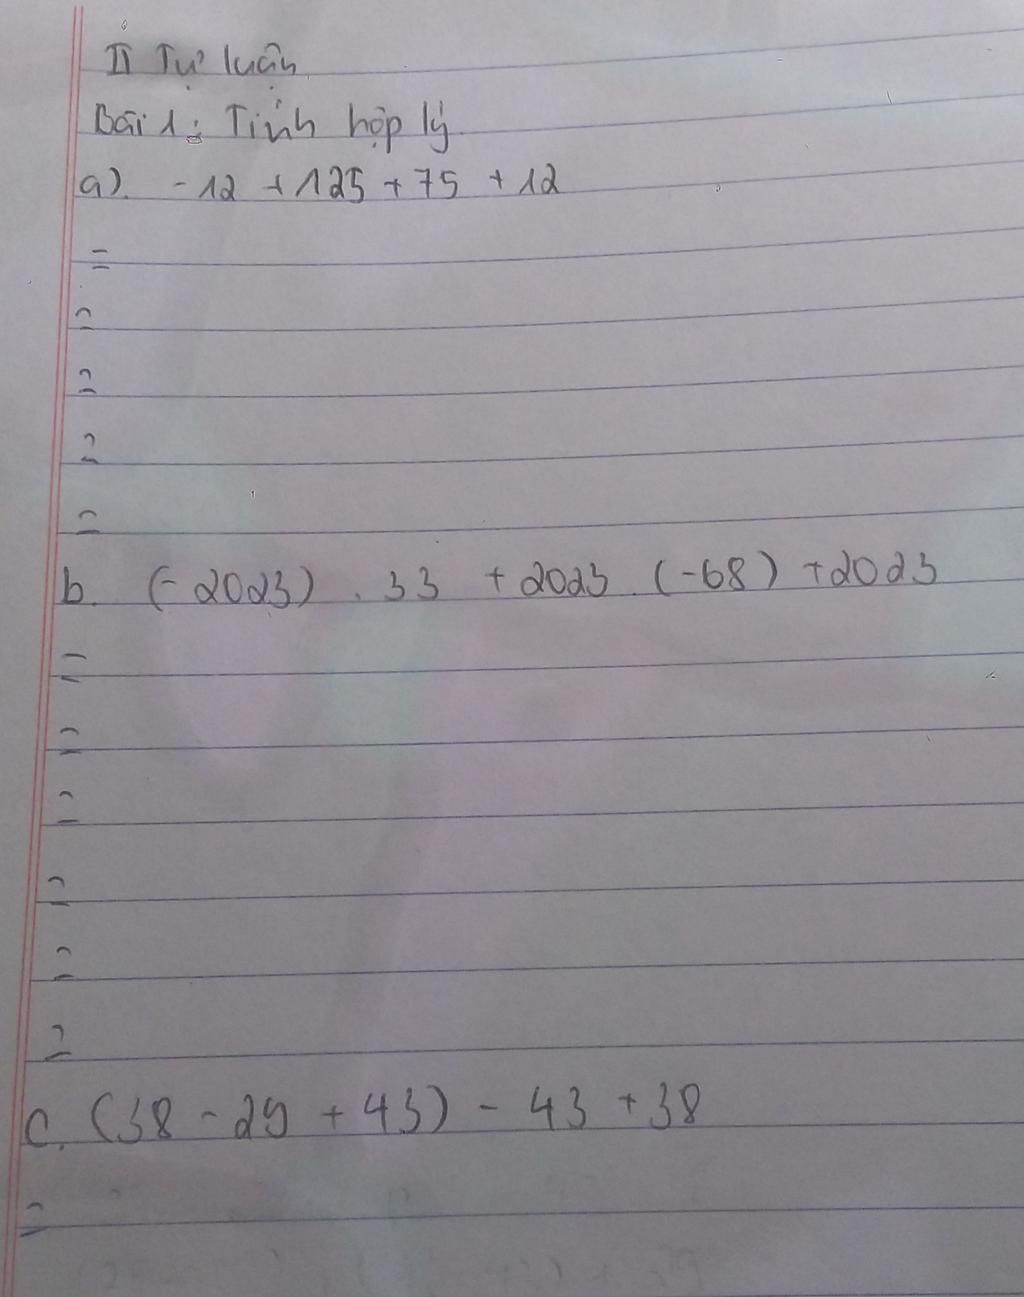 II Tự luận
Bài 1: Tính hợp lý
a). -12 + 125 + 75 + 12
=
=
=
=
=
b. (-2023) . 33 + 2023 . (-68) + 2023
=
=
=
=
=
=
c. (38 - 29 + 43) - 43 + 38
=